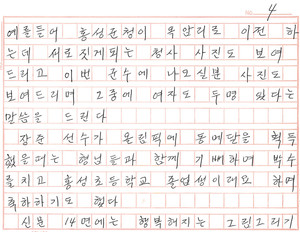 4
예를들어 홍성군청이 옥암리로 이전 하
는데 새로짓게되는 청사 사진도 보여
드리고 이번 군수에 나오실분 사진도
보여드리며 그중에 여자도 두명 있다는
말씀을 드린다
장준 선수가 올림픽에 동메달을 획득
했을때는 형님들과 함께 기뻐하며 박수
를치고 홍성초등학교 졸업생이래요 하며
축하하기도 했다
신문 14면에는 행복해지는 그림그리기